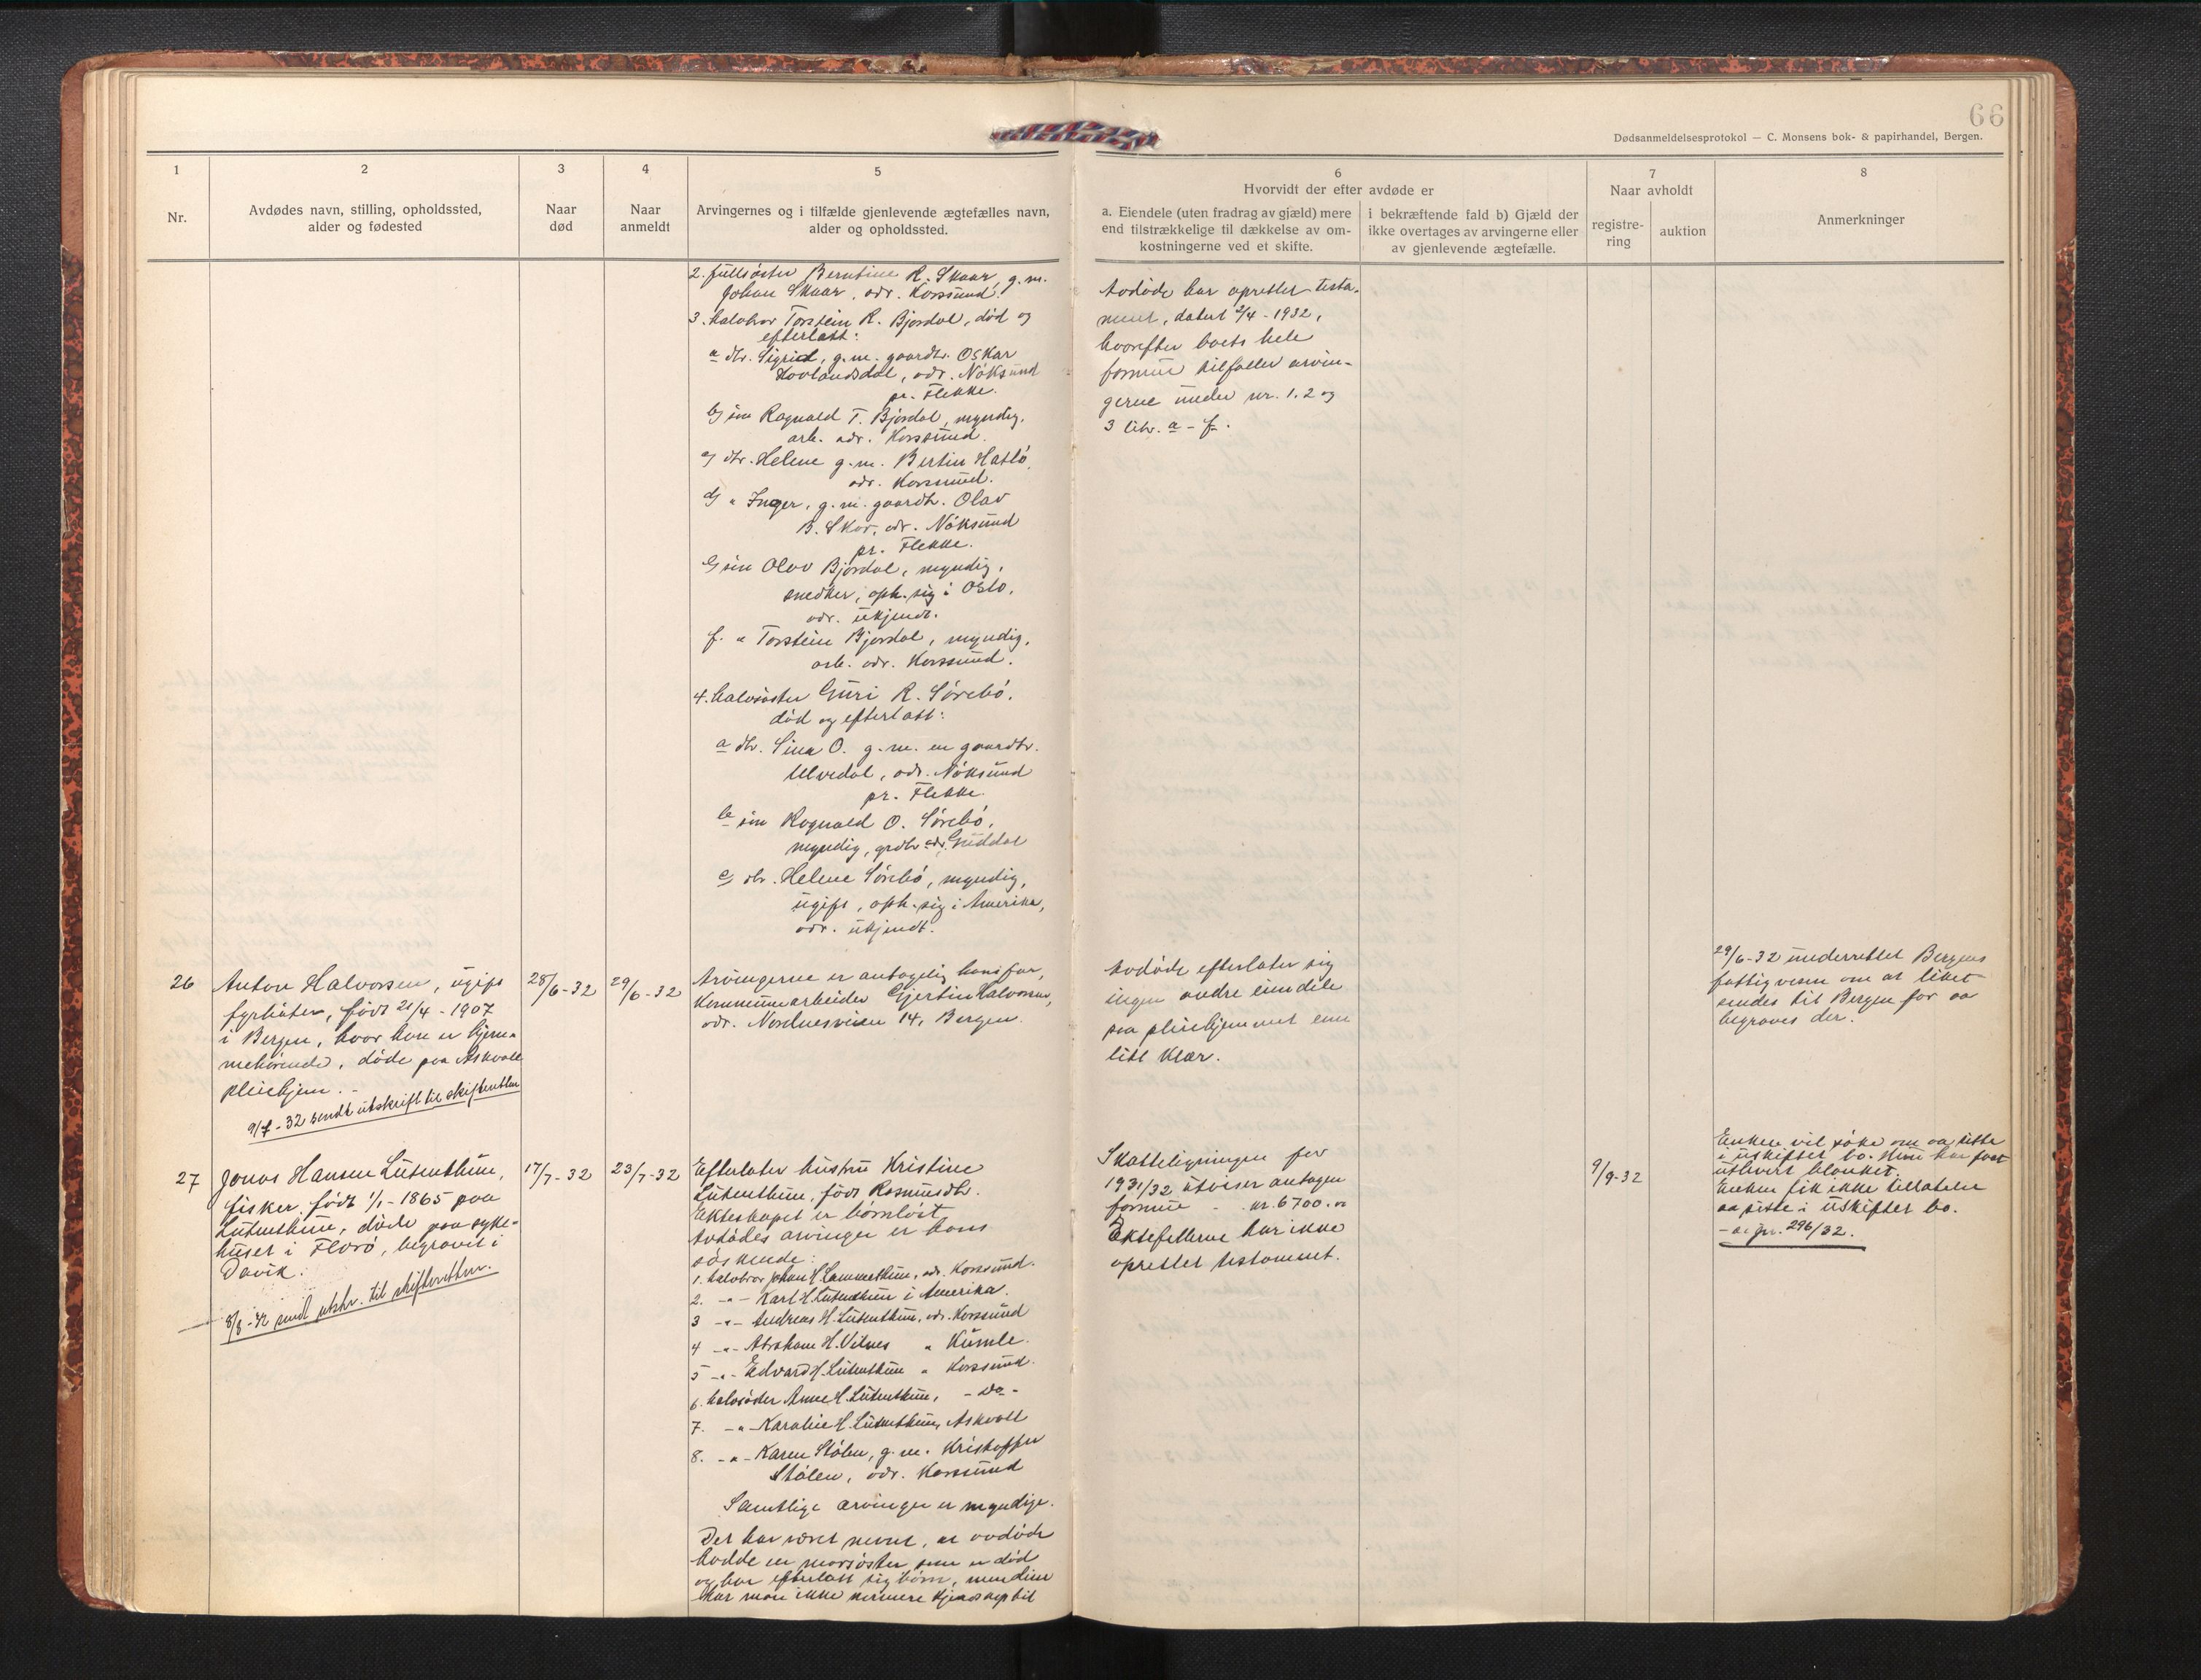 66
Dødsanmeldelsesprotokol — C. Monsens bok- & papirhandel, Bergen.
1
Nr.
2
Avdødes navn, stilling, opholdssted,
alder og fødested
3
Naar
død
4
Naar
anmeldt
5
Arvingernes og i tilfælde gjenlevende ægtefælles navn,
alder og opholdssted.
6
Hvorvidt der efter avdøde er
a. Eiendele (uten fradrag av gjæld) mere
end tilstrækkelige til dækkelse av om-
kostningerne ved et skifte.
i bekræftende fald b) Gjæld der
ikke overtages av arvingerne eller
av gjenlevende ægtefælle.
7
Naar avholdt
registre-
ring
auktion
8
Anmerkninger
2. fullsøster Berntine R. Skaar, g.m.
Johan Skaar, adr. Korssund.
3. halvbror Torstein R. Bjordal, død og
efterlatt:
a dtr. Sigrid, g.m. gaardbr. Oskar
Hovlandsdal, adr. Nøksund
pr. Flekke.
b) søn Ragnald T. Bjordal, myndig,
arb. adr. Korssund.
c) dtr. Helene g.m. Bertin Hatlø,
adr. Korssund.
d) " Inger, g.m. gaardbr. Olav
B. Skor, adr. Nøksund
pr. Flekke.
e) søn Olav Bjordal, myndig,
snedker, oph. sig i Oslo,
adr. ukjendt.
f. " Torstein Bjordal, myndig,
arb. adr. Korssund.
4. halvsøster Guri R. Sørebø,
død og efterlatt:
a dtr. Sina O. g.m. en gaardbr.
Ulvedal, adr. Nøksund
pr. Flekke.
b søn Ragnald O. Sørebø,
myndig, grdbr adr. Guddal
c) dtr. Helene Sørebø, myndig,
ugift, oph. sig i Amerika,
adr. ukjendt.
Avdøde har oprettet testa-
ment, datert 2/4 - 1932,
hvorefter boets hele
formue tilfaller arvin-
gerne under nr. 1. 2 og
3 litr. a - f.
26
Anton Halvorsen, ugift
fyrbøter, født 21/4 - 1907
i Bergen, hvor han er hjem-
mehørende, døde paa Askvoll
pleiehjem. -
9/7 - 32 sendt utskrift til skifteretten
28/6 - 32
29/6 - 32
Arvingerne er antagelig hans far,
Kommunearbeider Gjertin Halvorsen,
adr. Nordnesveien 14, Bergen.
Avdøde efterlater sig
ingen andre eiendele
paa pleiehjemmet enn
litt klær.
29/6 - 32 underrettet Bergens
fattigvesen om at liket
sendes til Bergen for aa
begraves der.
27
Jonas Hansen Lutentun,
fisker, født 1/1 - 1865 paa
Lutentun, døde paa syke-
huset i Florø, begravet i
Davik.
8/8 - 32 sendt utskr. til skifteretten.
17/7 - 32
23/7 - 32
Efterlater hustru Kristine
Lutentun, født Rasmusdtr.
Ekteskapet er barnløst
Avdødes arvinger er hans
søskende:
1. halvbror Johan H. adr. Korssund.
2. - " - Karl H. Lutentun i Amerika.
3 - " - Andreas H. Lutentun, adr. Korssund
4 - " - Abraham H. Vilnes " Kumle.
5 - " - Edvard H. Lutentun " Korssund.
6. halvsøster Anne H. Lutentun, - Do -
7. - " - Karoline H. Lutentun, Askvoll
8. - " - Karen Stølen, g.m. Kristoffer
Stølen, adr. Korssund
Samtlige arvinger er myndige.
Det har været nevnt, at avdøde
hadde en morsøster som er død
og har efterlatt sig barn, men disse
har man ikke nærmere kjendskap til
Skatteligningen for
1931/32 utviser antagen
formue - . kr. 6700.00
Ektefellerne har ikke
oprettet testament.
9/9 - 32
Enken vil søke om aa sitte
i uskiftet bo. Hun har faat
utlevert blanket.
Enken fik ikke tillatelse
aa sitte i uskiftet bo.
296/32.